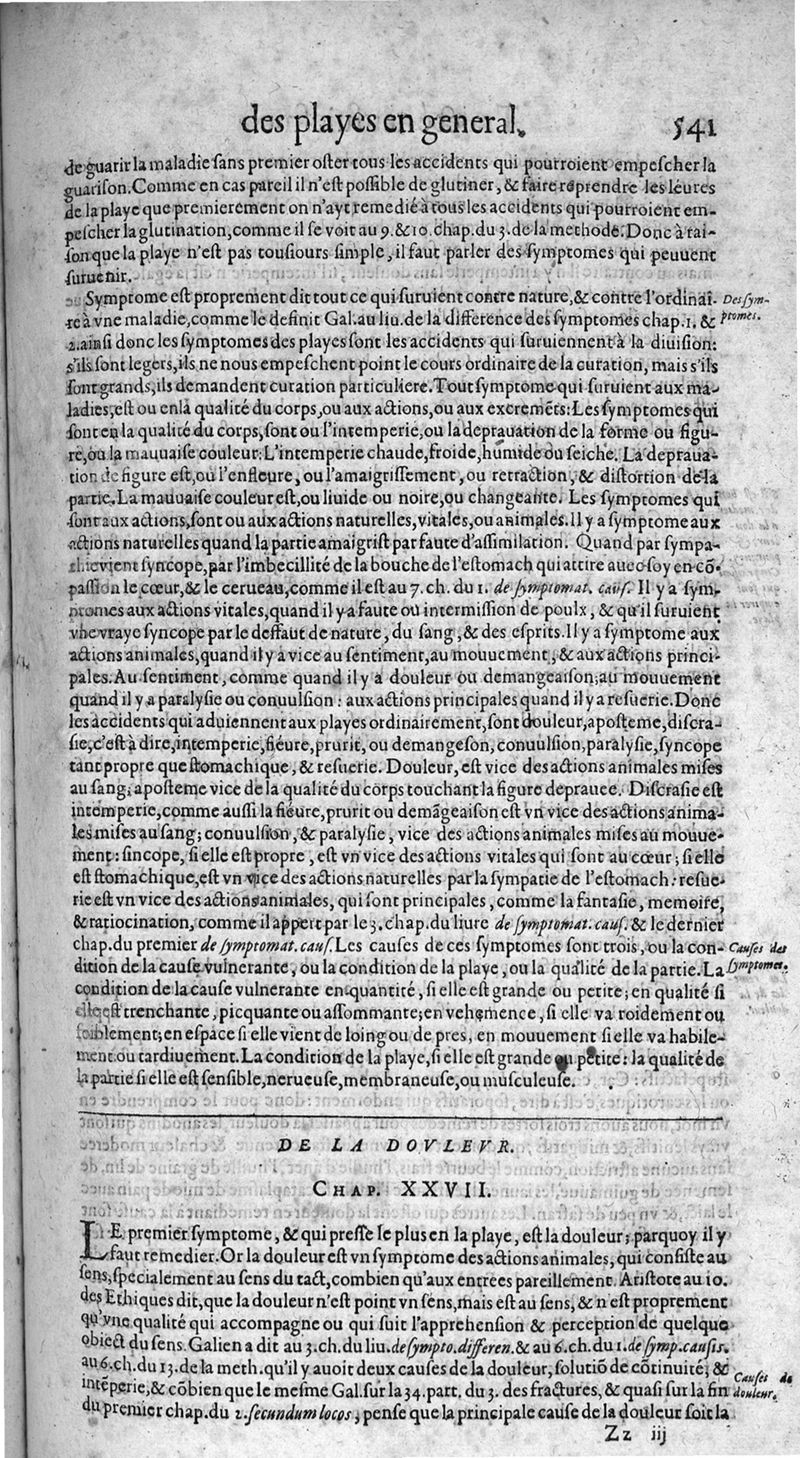 des playes en general. 541
de guarir la maladie sans premier oster tous les accidents qui pourroient empescher la
guarison. Comme en cas pareil il n'est possible de glutiner, & faire reprendre les léures
de la playe que premierement on n'ayt remedié à tous les accidents qui pourroient em-
pescher la glutination, comme il se voit au 9. & 10. chap. du 3. de la methode. Donc à rai-
son que la playe n'est pas tousiours simple, il faut parler des symptomes qui peuuent
suruenir.
Symptome est proprement dit tout ce qui suruient contre nature, & contre l'ordinai- Des sym-
re à vne maladie, comme le definit Gal. au liu. de la difference des symptomes chap. 1. & ptomes.
2. ainsi donc les symptomes des playes sont les accidents qui suruiennent à la diuision:
s'ils sont legers, ils ne nous empeschent point le cours ordinaire de la curation, mais s'ils
sont grands, ils demandent curation particuliere. Tout symptome qui suruient aux ma-
ladies, est ou en la qualité du corps, ou aux actions, ou aux excremẽts: Les symptomes qui
sont en la qualité du corps, sont ou l'intemperie, ou la deprauation de la forme ou figu-
re, ou la mauuaise couleur: L'intemperie chaude, froide, humide ou seiche. La depraua-
tion de figure est, ou l'enfleure, ou l'amaigrissement, ou retraction, & distortion de la
partie. La mauuaise couleur est, ou liuide ou noire, ou changeante. Les symptomes qui
sont aux actions, sont ou aux actions naturelles, vitales, ou animales. Il y a symptome aux
actions naturelles quand la partie amaigrist par faute d'assimilation. Quand par sympa-
thie vient syncope, par l'imbecillité de la bouche de l'estomach qui attire auec soy en cõ-
passion le cœur, & le cerueau, comme il est au 7. ch. du 1. de symptomat. caus. Il y a sym-
ptomes aux actions vitales, quand il y a faute ou intermission de poulx, & qu'il suruient
vne vraye syncope par le deffaut de nature, du sang, & des esprits. Il y a symptome aux
actions animales, quand il y à vice au sentiment, au mouuement, & aux actions princi-
pales. Au sentiment, comme quand il y a douleur ou demangeaison; au mouuement
quand il y a paralysie ou conuulsion: aux actions principales quand il y a resuerie. Donc
les accidents qui aduiennent aux playes ordinairement, sont douleur, aposteme, discra-
sie, c'est à dire, intemperie, fiéure, prurit, ou demangeson, conuulsion, paralysie, syncope
tant propre que stomachique, & resuerie. Douleur, est vice des actions animales mises
au sang; aposteme vice de la qualité du corps touchant la figure deprauee. Discrasie est
intemperie, comme aussi la fiéure, prurit ou demãgeaison est vn vice des actions anima-
les mises au sang; conuulsion, & paralysie, vice des actions animales mises au mouue-
ment: sincope, si elle est propre, est vn vice des actions vitales qui sont au cœur; si elle
est stomachique, est vn vice des actions naturelles par la sympatie de l'estomach: resue-
rie est vn vice des actions animales, qui sont principales, comme la fantasie, memoire,
& ratiocination, comme il appert par le 3. chap. du liure de symptomat. caus. & le dernier
chap. du premier de symptomat. caus. Les causes de ces symptomes sont trois, ou la con- Causes des
dition de la cause vulnerante, ou la condition de la playe, ou la qualité de la partie. La symptomes.
condition de la cause vulnerante en quantité, si elle est grande ou petite; en qualité si
elle est trenchante, picquante ou assommante; en vehemence, si elle va roidement ou
foiblement; en espace si elle vient de loing ou de pres, en mouuement si elle va habile-
ment ou tardiuement. La condition de la playe, si elle est grande ou petite: la qualité de
la partie si elle est sensible, nerueuse, membraneuse, ou musculeuse.
DE LA DOVLEVR.
CHAP. XXVII.
LE premier symptome, & qui presse le plus en la playe, est la douleur; parquoy il y
faut remedier. Or la douleur est vn symptome des actions animales, qui consiste au
sens, specialement au sens du tact, combien qu'aux entrees pareillement. Aristote au 10.
des Ethiques dit, que la douleur n'est point vn sens, mais est au sens, & n'est proprement
qu'vne qualité qui accompagne ou qui suit l'apprehension & perception de quelque
obiect du sens. Galien a dit au 3. ch. du liu. de sympto. differen. & au 6. ch. du 1. de symp. causis.
au 6. ch. du 13. de la meth. qu'il y auoit deux causes de la douleur, solutiõ de cõtinuité; & Causes de
intẽperie, & cõbien que le mesme Gal. sur la 34. part. du 3. des fractures, & quasi sur la fin douleur.
du premier chap. du 2. secundum locos, pense que la principale cause de la douleur soit la
Zz iij